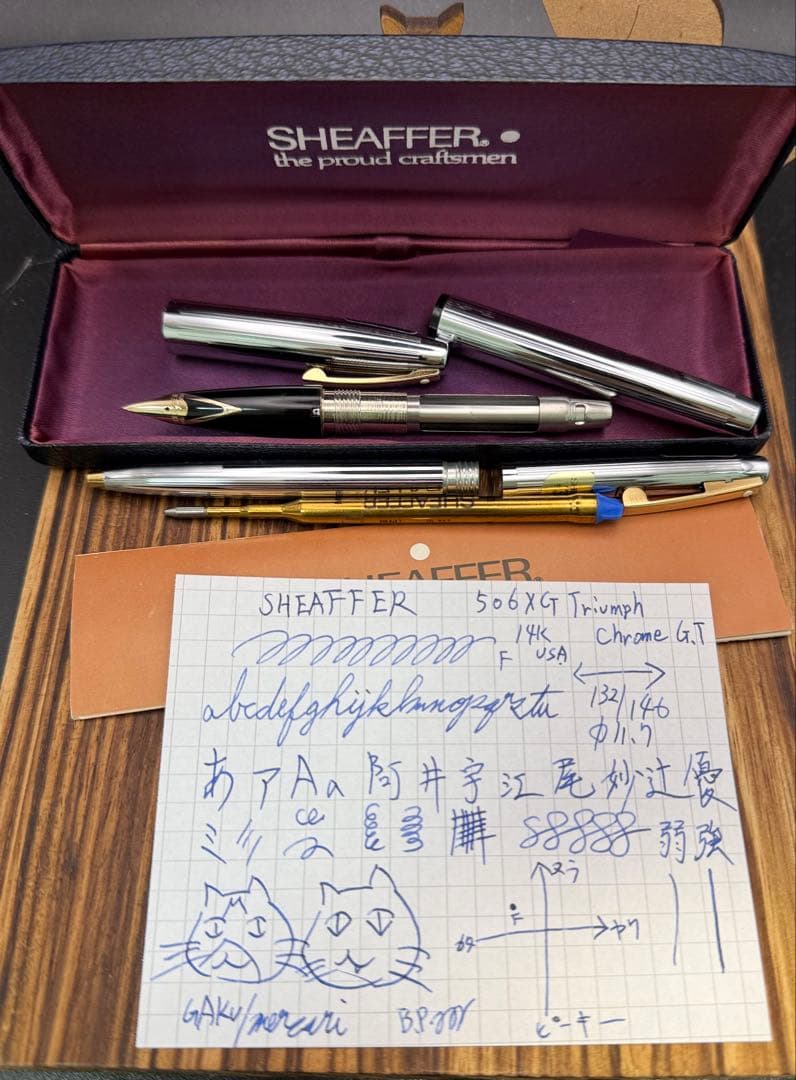 SHEAFFER.
the proud craftsmen
SHEAFFER
SHEAFFER.
SHEAFFER 506XG Triumph
14K Chrome G.T
F USA
132/146
φ11.7
あ ア A a 阿 井 宇 江 尾 妙 辻 優
弱 強
ヌラ
F
カタ ヤワ
ピーキー
GAKU/mercari BP.